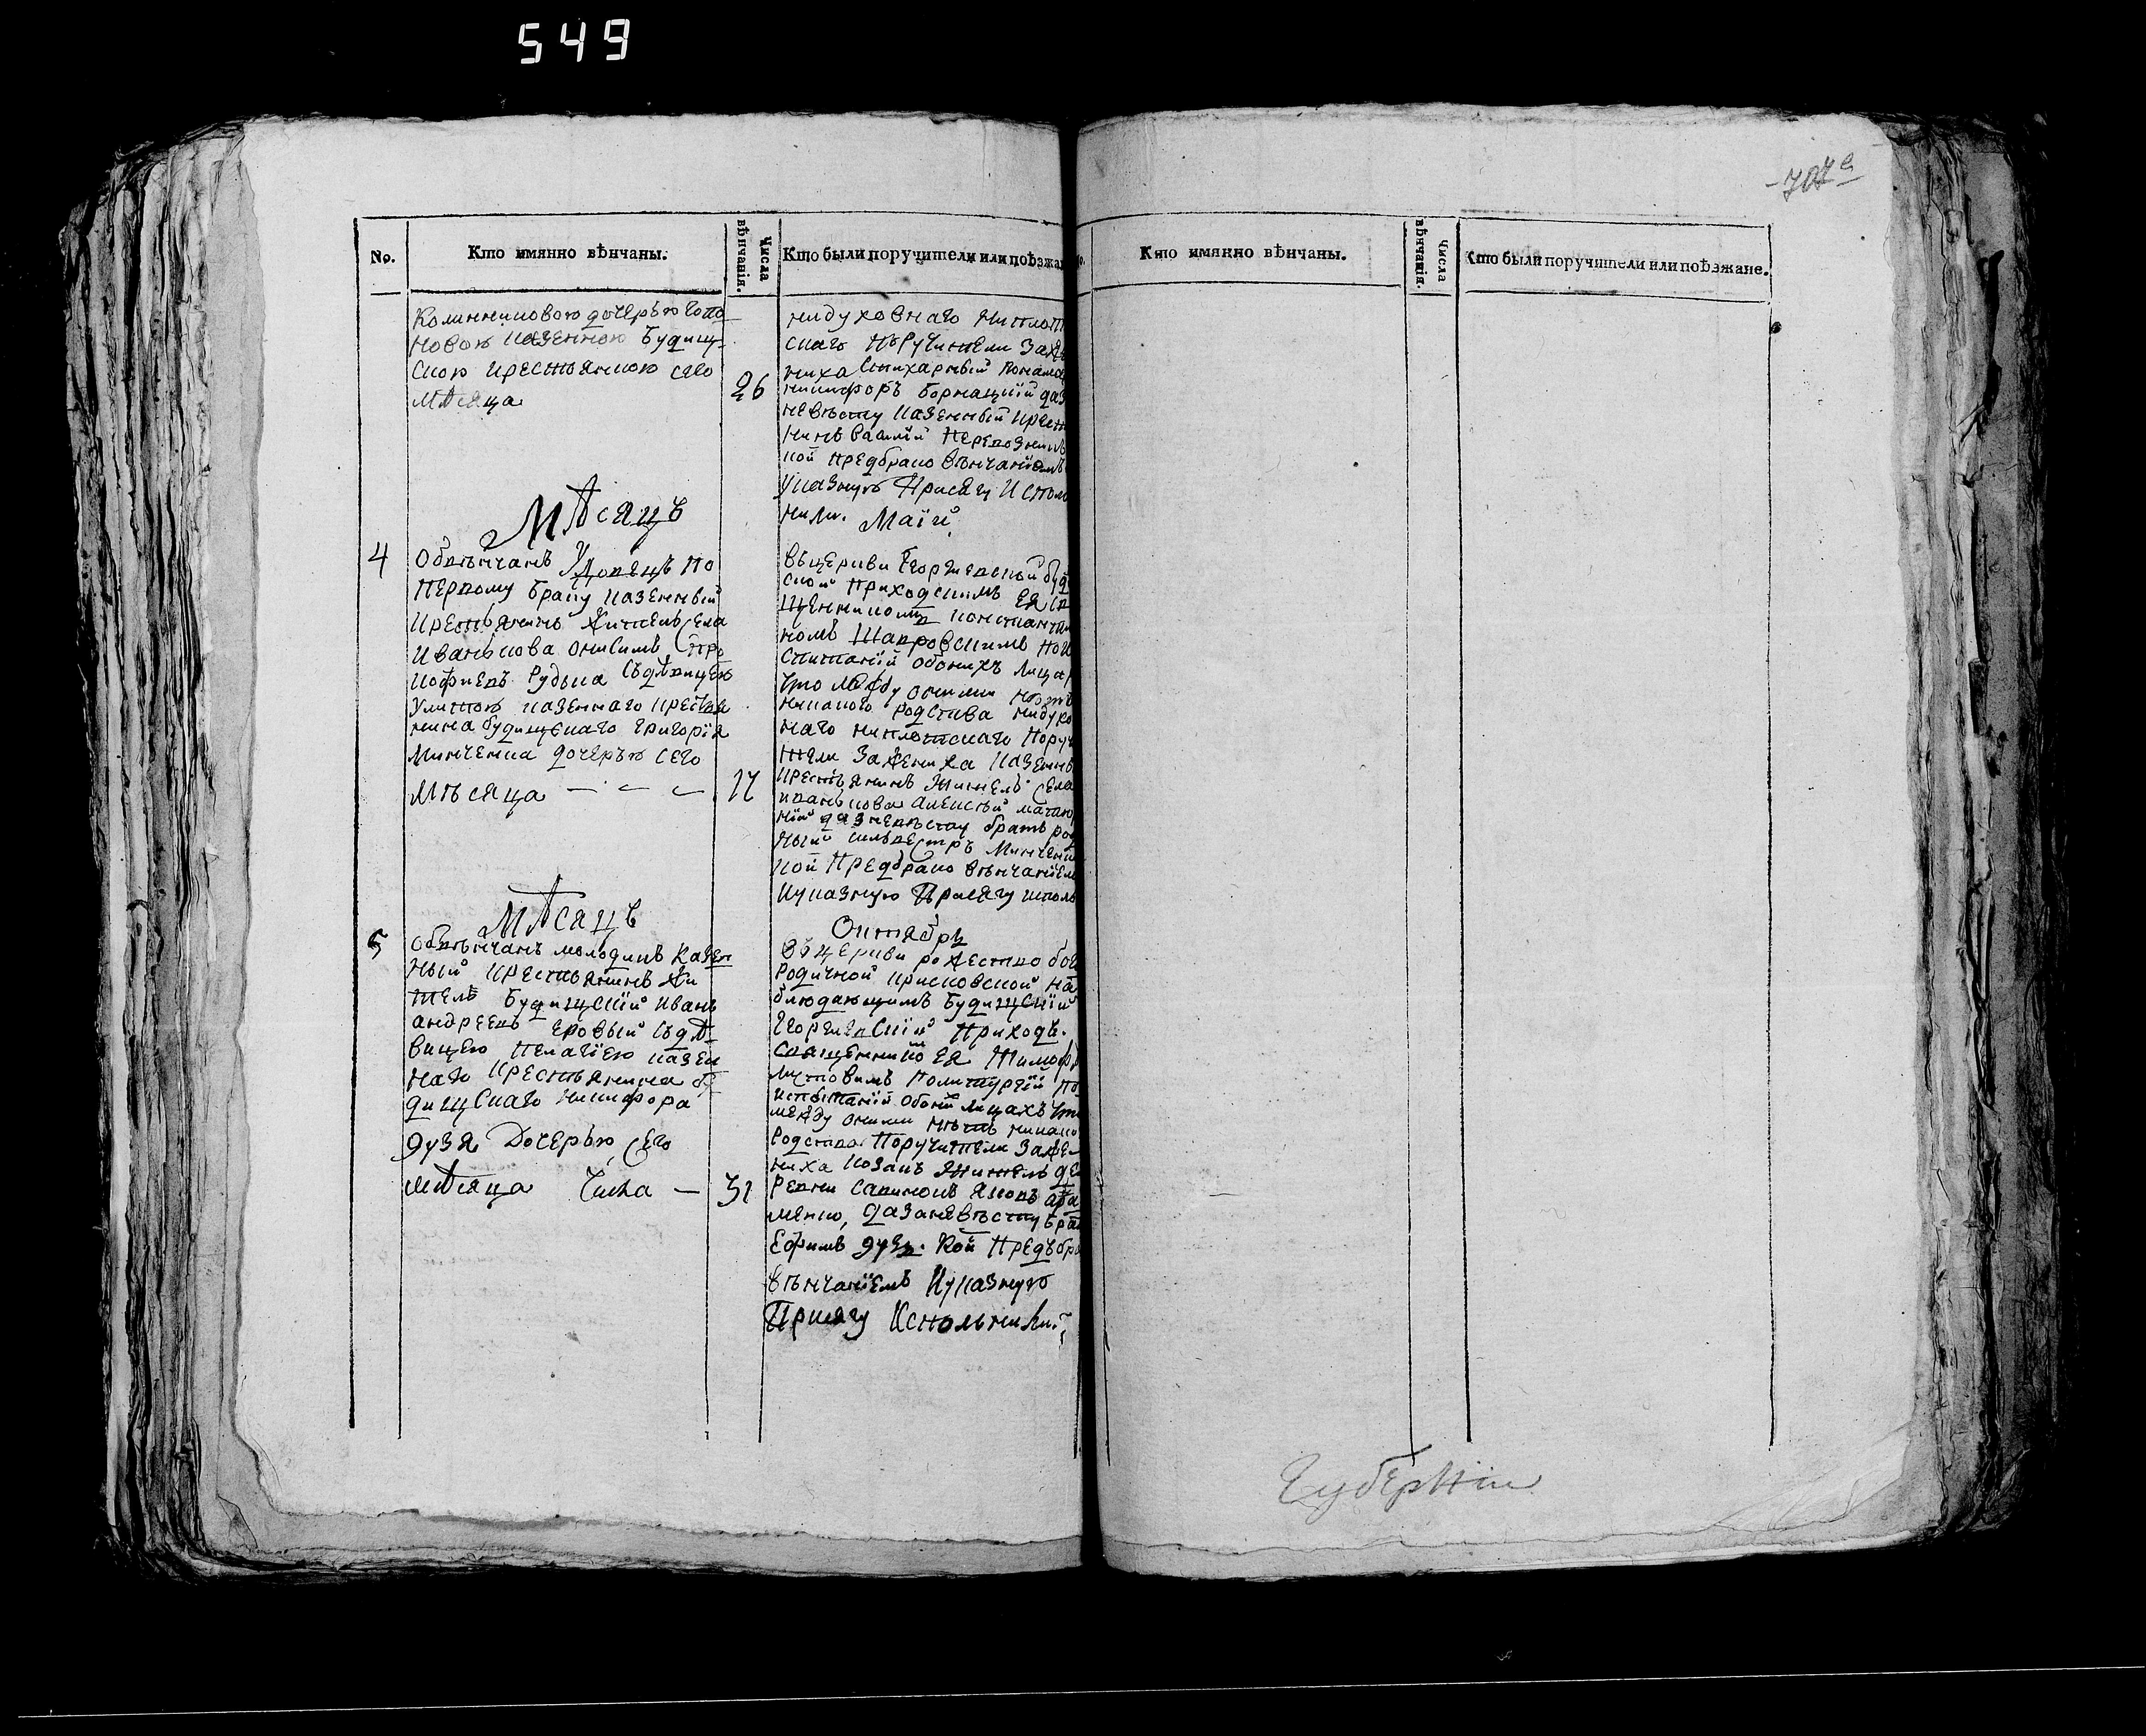 549
707
No.
Кто имянно вѣнчаны.
Числа вѣнчанія.
Кто были поручители или поѣзжа
дочерью
новою казенною Будищ-
скою крестьянкою сего
мѣсяца
26
нидуховнаго ниплот
скаго Поручители Заже
ниха Стихарный Понама
никифоръ
невѣсту казенный крест
нинъ василій
кой предбрако вѣнчаніемъ
указную Присягу Испол
нили.
Мѣсяцъ
Маій
4
Обвѣнчанъ Удовецъ По
Первому браку казенный
Крестьянинъ Житель Села
Иванкова онисимъ Про
кофиевъ Рудька Съдѣвицею
Улитою казеннаго крестья
нина будищскаго Григорія
Минченка дочерью сего
Мѣсяца - - -
17
вцеркви Георгиевской буд
ской Приходскимъ Ея Св
щенникомъ константи
номъ
Спитаній обоихъ Лицъ
Что между оними нѣтъ
никакого родства нидухо
наго ниплотскаго Поручи
тели Зажениха Казенны
крестьянинъ Житель Села
иванкова алексѣй
ній зазневѣсту братъ род
ный сильвестръ Минченк
кой Предбрако вѣнчаніем
Куказную Присягу исполь
Мѣсяцъ
Октябрь
5
Обвѣнчанъ молодикъ Казен
ный крестьянинъ Жи
тель Будищскій Иванъ
андреевъ Еровый Съдѣ
вицею Пелагіею казен
наго крестьянина бу
дищскаго никифора
дузя Дочерью, Сего
мѣсяца Числа —
31
Вцеркви рождество бого
Родичной крисковской на
блюдающимъ Будищскій
Георгиевскій Приходъ.
Священникомъ Ея Тимоф
Листовимъ Политургій По
испытаній обоихъ лицахъ Что
между оними нѣтъ никако
родства. Поручители Заже
ниха козакъ житель де
ревни Савинокъ Яковъ
менко, Зазаневѣсту брат
Ефимъ дузь. Кой Предъбра
вѣнчаніемъ Куказную
Присягу Исполнили.
No.
Кто имянно вѣнчаны.
Числа вѣнчанія.
Кто были поручители или поѣзжане.
Губерніи